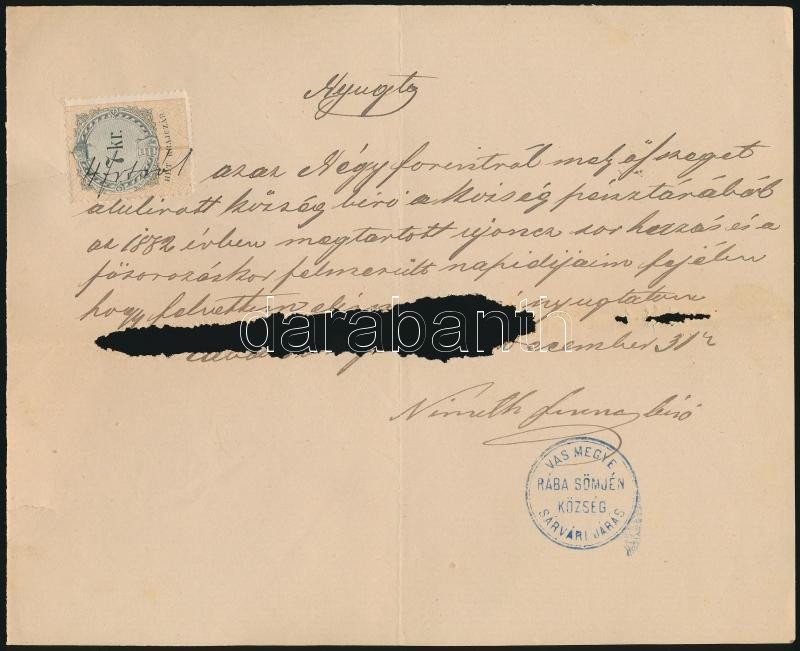 Nyugta
7 kr.
HÉT KRAJCZÁR
azaz Négy forintról mely összeget
alulirott község biró a község pénztárából
az 1882 évben megtartott ujoncz sor huzás és a
fősorozáskor felmerült napidijaim fejében
hogy felvettem nyugtatom
december 31
Németh biró
darabanth
VAS MEGYE
RÁBA SÖMJÉN
KÖZSÉG
SÁRVÁRI JÁRÁS